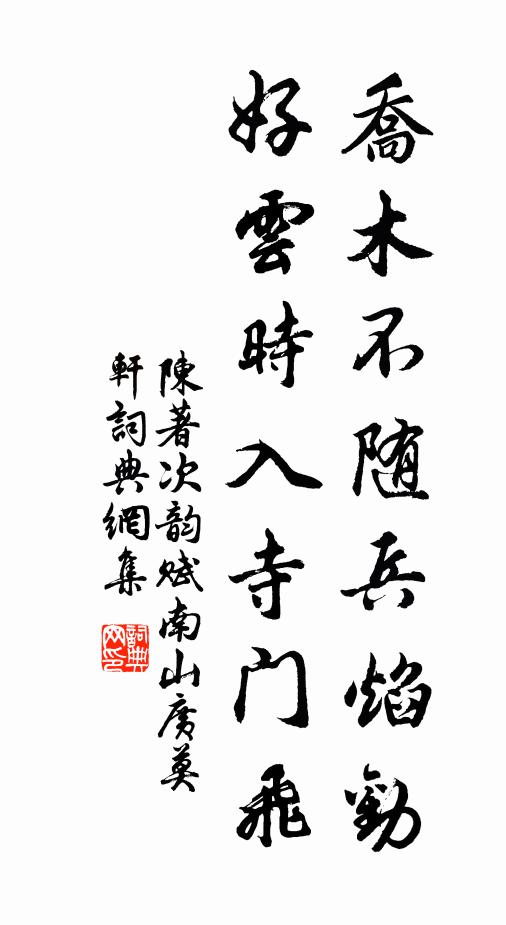 喬木不随兵焰勁
好雲時入寺門飛
陳著次韵賦南山廣莫
軒詞典網集
詞典网印